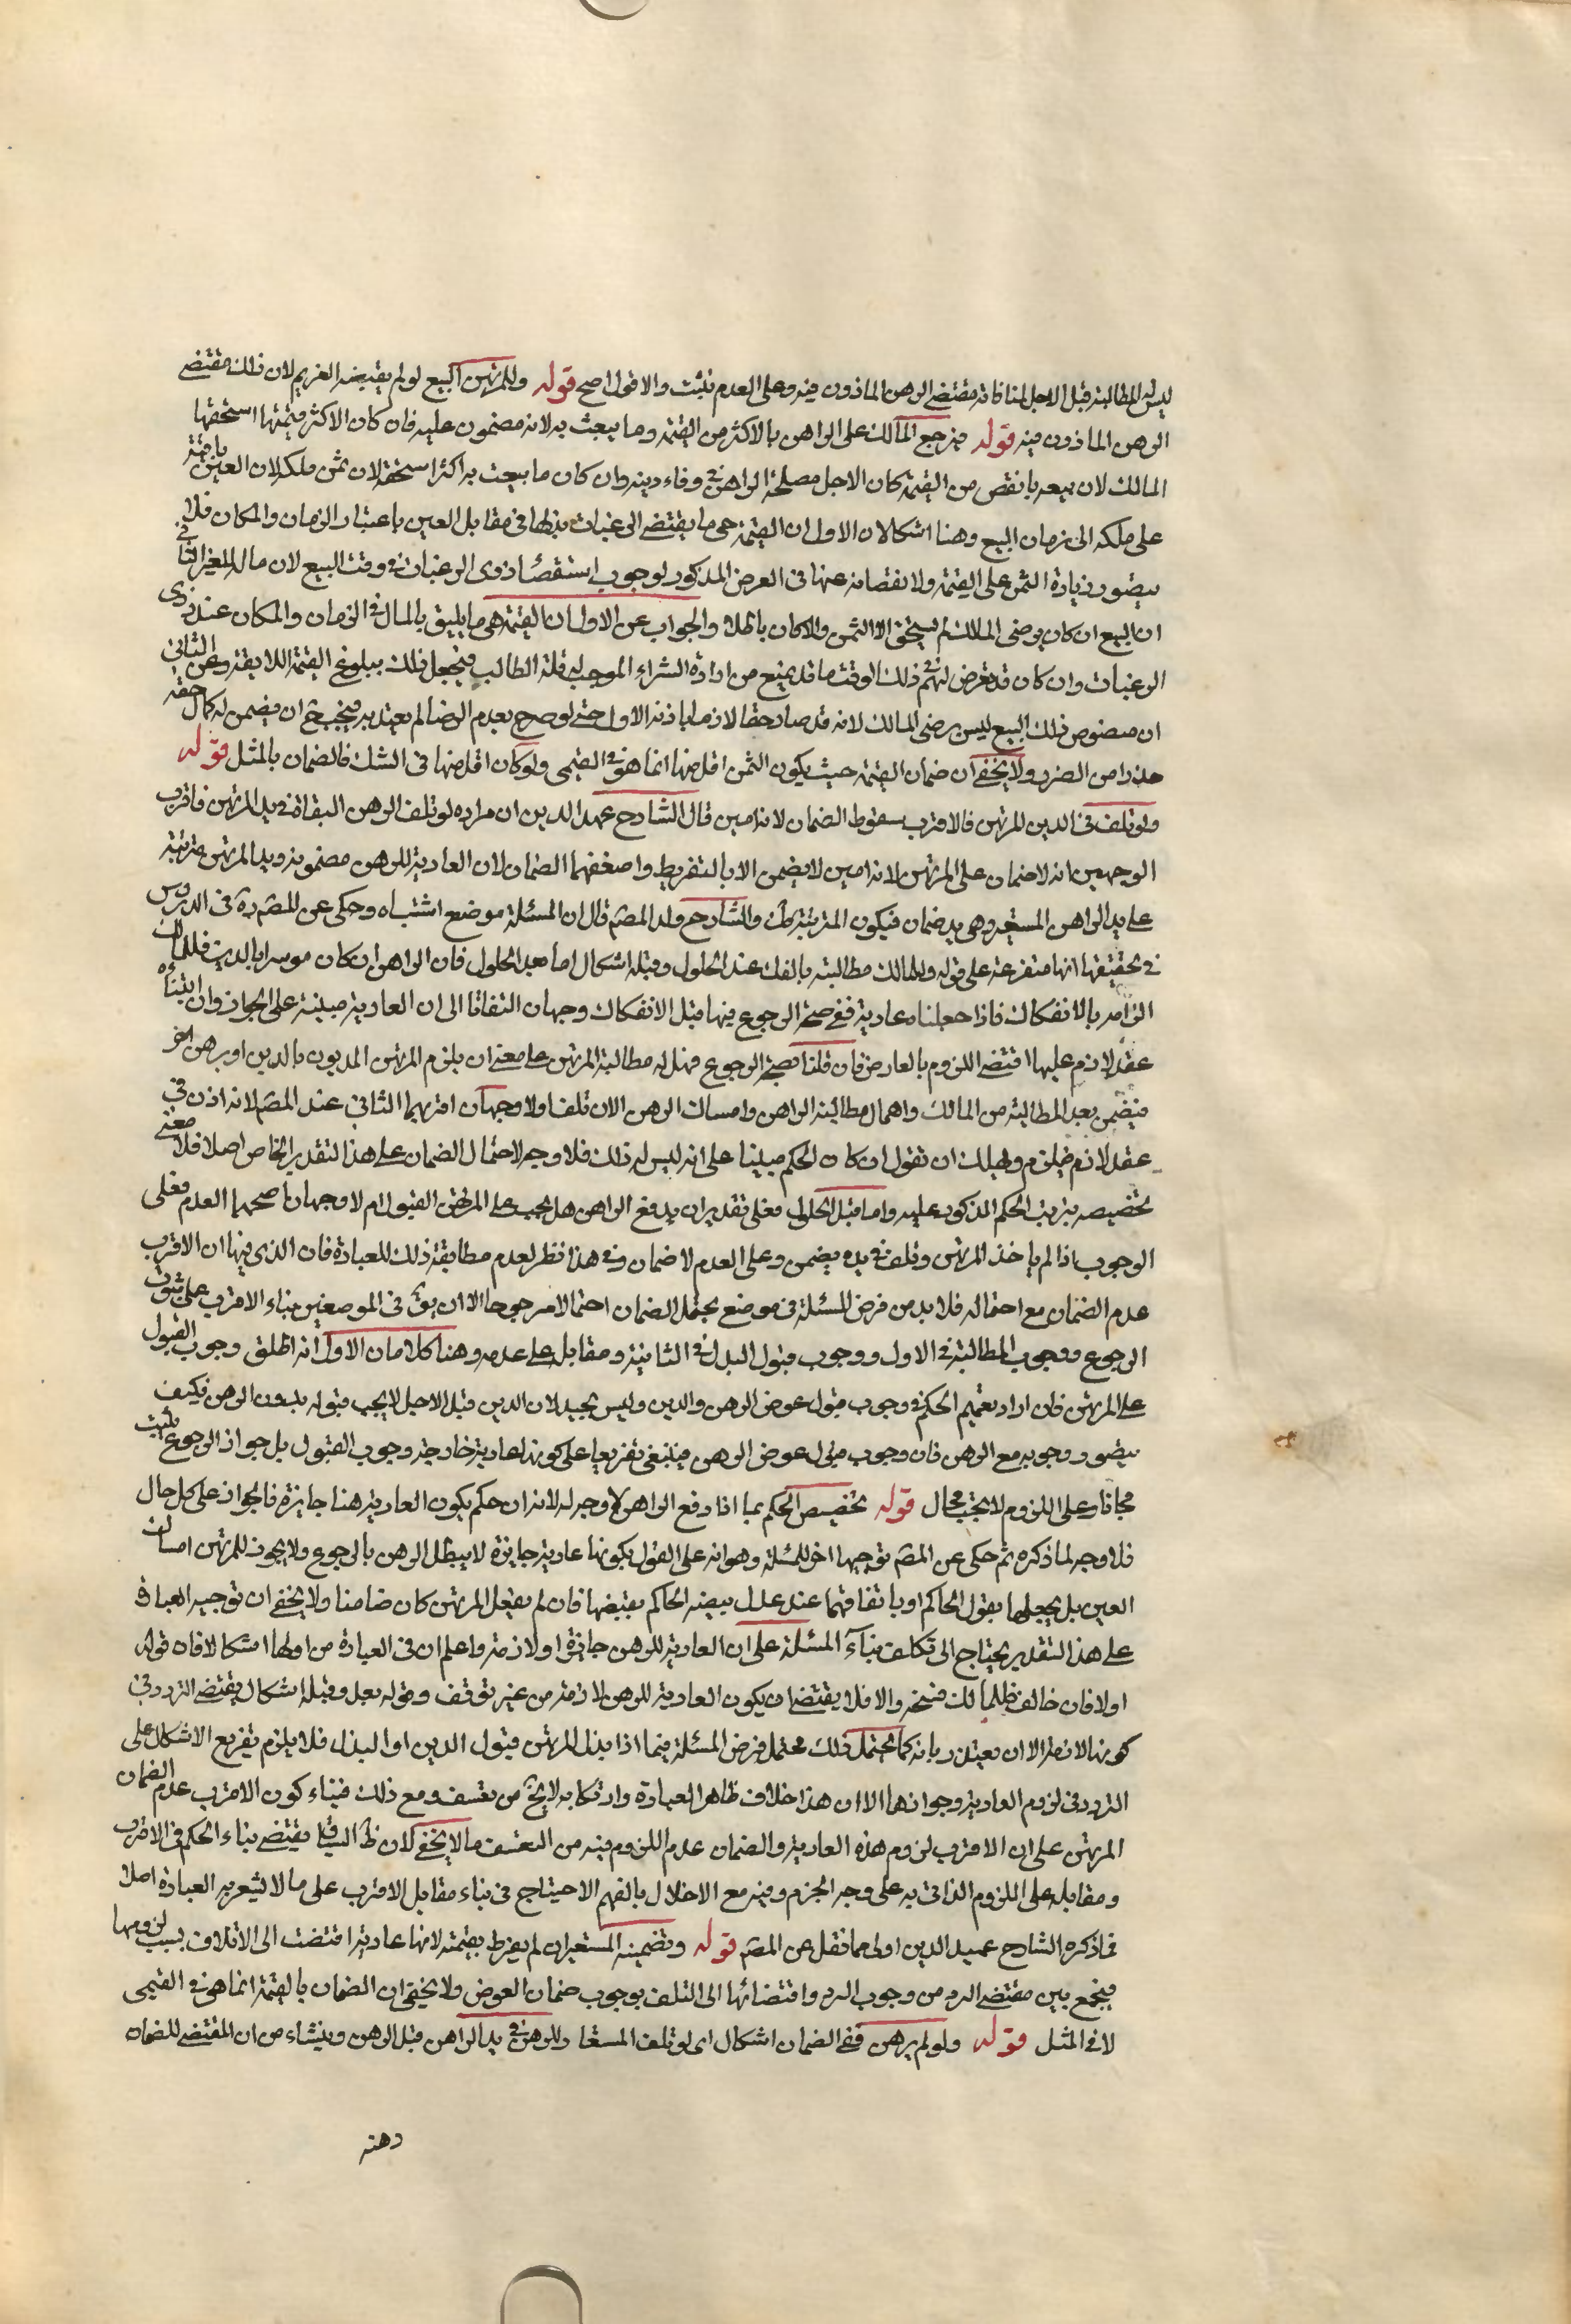 ليس له المطالبة قبل الاجل لمنافاته مقتضى الرهن الماذون فيه وعلى العدم تثبت والاول اصح قوله وللمرتهن البيع لو لم يقبضه الغريم لان ذلك مقتضى
الرهن الماذون فيه قوله فيرجع المالك على الراهن بالاكثر من القيمة وما بيعت به لانه مضمون عليه فان كان الاكثر قيمتها استحقها
المالك لان بيعه بانقص من القيمة كان لاجل مصلحة الراهن في وفاء دينه وان كان ما بيعت به اكثر استحقه لان ثمن ملكه لان العين باقية
على ملكه الى زمان البيع وهنا اشكالان الاول ان القيمة هي ما يقتضى الرغبات بذلها في مقابل العين باعتبار الزمان والمكان فلا
يتصور زيادة الثمن على القيمة ولا نقصانه عنها في العرض المذكور لوجوب استقصاء ذوى الرغبات في وقت البيع لان مال الغير الثاني
ان البيع ان كان برضى المالك لم يستحق الا الثمن والا كان باطلا والجواب عن الاول ان القيمة هي ما يليق بالمال في الزمان والمكان عند ذوى
الرغبات وان كان قد تعرض لهم ذلك الوقت ما قد يمنع من ارادة الشراء الموجب لقلة الطالب فيخل ذلك ببلوغ القيمة اللايقة وعن الثاني
ان خصوص ذلك البيع ليس برضى المالك لانه قد صار حقا لازما باذنه الاول حتى لو صرح بعدم الرضا لم يعتد به فيجب ح ان يضمن له كمال حقه
حذرا من الضرر ولا يخفى ان ضمان القيمة حيث يكون الثمن اقل منها انما هو في القيمي ولو كان اقل منها في المثلي فالضمان بالمثل قوله
ولو تلف في الدين المرتهن فالاقرب سقوط الضمان لانه امين قال الشارح عميد الدين ان مراده لو تلف الرهن البقاة في يد المرتهن فاقرب
الوجهين انه لا ضمان على المرتهن لانه امين لا يضمن الا بالتفريط واضعفهما الضمان لان العارية للرهن مضمونة ويد المرتهن مترتبة
على يد الراهن المستعير وهي يد ضمان فيكون المترتبة كك والشارح ولد المصم قال ان المسئلة موضع اشتباه وحكى عن المصم ره في الدرس
في تحقيقها انها متفرعة على قوله وللمالك مطالبته بالفك عند الحلول وقبله اشكال اما بعد الحلول فان الراهن ان كان موسرا بالدين فللمالك
الزامه بالانفكاك فاذا جعلناه عارية ففي صحة الرجوع فيها قبل الانفكاك وجهان التفاتا الى ان العارية مبنية على الجواز وان ابتناء
عقد لازم عليها اقتضى اللزوم بالعارض فان قلنا بصحة الرجوع فهل له مطالبة المرتهن على معنى ان يلزم المرتهن المديون بالدين او برهن اخر
فيضمن بعد المطالبة من المالك واهمال مطالبة الراهن وامساك الرهن الان تلف اولا وجهان اقربهما الثاني عند المصم لانه اذن في
عقد لازم فيلزم ولك ان تقول ان كان الحكم مبنيا على انه ليس له ذلك فلا وجه لاحتمال الضمان على هذا التقدير الخاص اصلا فلا معنى
لتخصيصه بترتب الحكم المذكور عليه واما قبل الحلول فعلى تقدير ان يدفع الراهن هل يجب على المرتهن القبول ام لا وجهان اصحهما العدم فعلى
الوجوب اذا لم ياخذ المرتهن وتلف في يده يضمن وعلى العدم لا ضمان وفي هذا نظر لعدم مطابقة ذلك للعبارة فان الذي فيها ان الاقرب
عدم الضمان مع احتماله فلا بد من فرض المسئلة في موضع يحتمل الضمان احتمالا مرجوحا الا ان يق في الموضعين بناء الاقرب على ثبوت
الرجوع ووجوب المطالبة في الاول ووجوب قبول البدل في الثانية ومقابله على عدمه وهنا كلامان الاول انه اطلق وجوب القبول
على المرتهن فان اراد تعميم الحكم في وجوب قبول عوض الرهن والدين وليس بجيد لان الدين قبل الاجل لا يجب قبوله بدون الرهن فكيف
يتصور وجوبه مع الرهن فان وجوب قبول عوض الرهن فينبغي تفريعا على كونه عارية خارجة وجوب القبول بل جواز الرجوع يثبت
مجانا وعلى اللزوم لا يجب بحال قوله تخصيص الحكم بما اذا دفع الراهن لا وجه له لانه ان حكم بكون العارية هنا جايزة فالجواز على كل حال
فلا وجه لما ذكره ثم حكى عن المصم توجيها اخر للمسئلة وهو انه على القول بكونها عارية جايزة لا يبطل الرهن بالرجوع ولا يجوز للمرتهن امساك
العين بل يجعلها بقول الحاكم او باتفاقهما عند عدل ينصبه الحاكم بقبضها فان لم يفعل المرتهن كان ضامنا ولا يخفى ان توجيه العبارة
على هذا التقدير يحتاج الى تكلف بناء المسئلة على ان العارية للرهن جايزة او لازمة واعلم ان في العبارة من اولها اشكالا فان قوله
اولا فان خالف فللمالك فسخه والا فلا يقتضى ان يكون العارية للرهن لازمة من غير توقف وقوله بعد وقبله اشكال يقتضى التردد في
كونها لازمة الا ان يعتذر بانه كما يحتمل ذلك محتمل فرض المسئلة فيما اذا بذل للمرتهن قبول الدين او البذل فلا يلزم تفريع الاشكال على
التردد في لزوم العارية وجوازها الا ان هذا خلاف ظاهر العبارة وارتكابه لا يخ من تعسف ومع ذلك فبناء كون الاقرب عدم الضمان
المرتهن على ان الاقرب لزوم هذه العارية والضمان عدم اللزوم فيه من التعسف ما لا يخفى لان ظ السياق يقتضى بناء الحكم في الاقرب
ومقابله على اللزوم الذاتي به على وجه الجزم وفيه مع الاخلال بالفهم الاحتياج في بناء مقابل الاقرب على ما لا تشعر به العبارة اصلا
فما ذكره الشارح عميد الدين اولى مما نقل عن المصم قوله وتضمينه المستعير ان لم يفرط بقيمته لانها عارية اقتضت الى الاتلاف بسبب لزومها
فيجمع بين مقتضى الرد من وجوب الرد واقتضائها الى التلف بوجوب ضمان العوض ولا يخفى ان الضمان بالقيمة انما هو في القيمي
لا في المثل قوله ولو لم يرهن ففي الضمان اشكال اى لو تلف المستعار للرهن في يد الراهن قبل الرهن وينشاء من ان المقتضى للضمان
رهنه